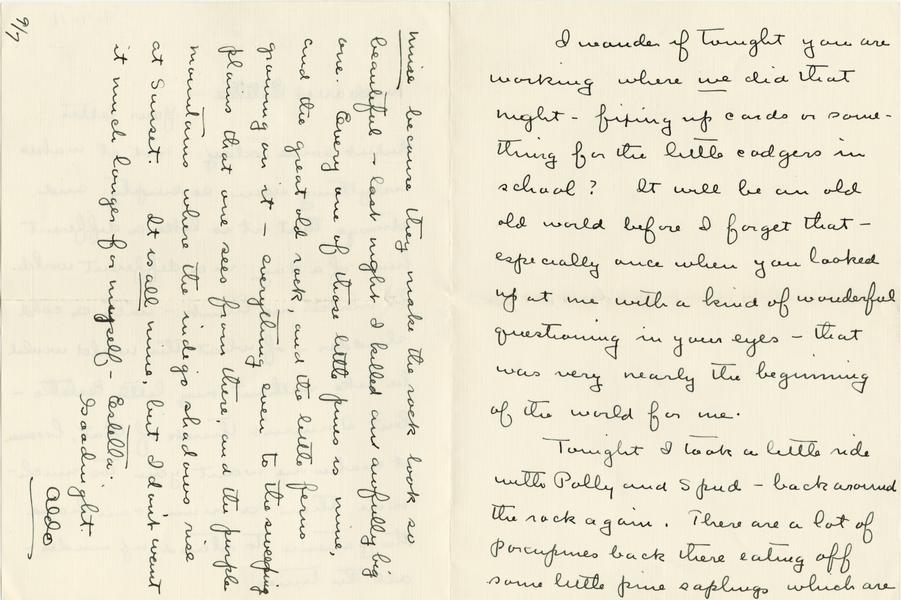 I wonder if tonight you are
working where we did that
night - fixing up cards or some-
thing for the little codgers in
school? It will be an old
old world before I forget that -
especially once when you looked
up at me with a kind of wonderful
questioning in your eyes - that
was very nearly the beginning
of the world for me.
Tonight I took a little ride
with Polly and Spud - back around
the rock again. There are a lot of
porcupines back there eating off
some little pine saplings which are
mine because they make the rock look so
beautiful - last night I killed an awfully big
one. Every one of those little pines is mine,
and the great old rock, and the little ferns
growing on it - everything even to the sweeping
plains that one sees from there, and the purple
mountains where the indigo shadows rise
at Sunset. It is all mine; but I don't want
it much longer for myself - Estella:
Goodnight.
Aldo
9/7